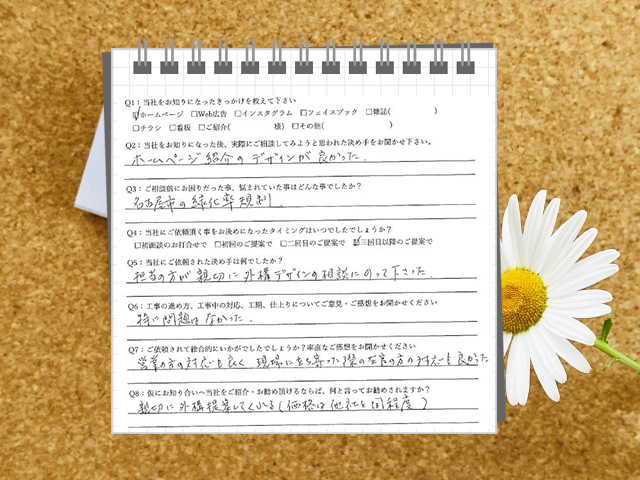 Q1：当社をお知りになったきっかけを教えて下さい
☑ホームページ □Web広告 □インスタグラム □フェイスブック □雑誌( )
□チラシ □看板 □ご紹介( 様) □その他( )
Q2：当社をお知りになった後、実際にご相談してみようと思われた決め手をお聞かせ下さい。
ホームページ紹介のデザインが良かった.
Q3：ご相談前にお困りだった事、悩まれていた事はどんな事でしたか？
名古屋市の緑化率規制.
Q4：当社にご依頼頂く事をお決めになったタイミングはいつでしたでしょうか？
□初面談のお打合せで □初回のご提案で □二回目のご提案で ☑三回目以降のご提案で
Q5：当社にご依頼された決め手は何でしたか？
担当の方が親切に外構デザインの相談にのって下さった.
Q6：工事の進め方、工事中の対応、工期、仕上りについてご意見・ご感想をお聞かせください
特に問題はなかった.
Q7：ご依頼されて総合的にいかがでしたでしょうか？率直なご感想をお聞かせください
営業の方の対応も良く 現場に立ち寄った際の左官の方の対応も良かった
Q8：仮にお知り合いへ当社をご紹介・お勧め頂けるならば、何と言ってお勧めされますか？
親切に外構提案してくれる(価格は他社と同程度)